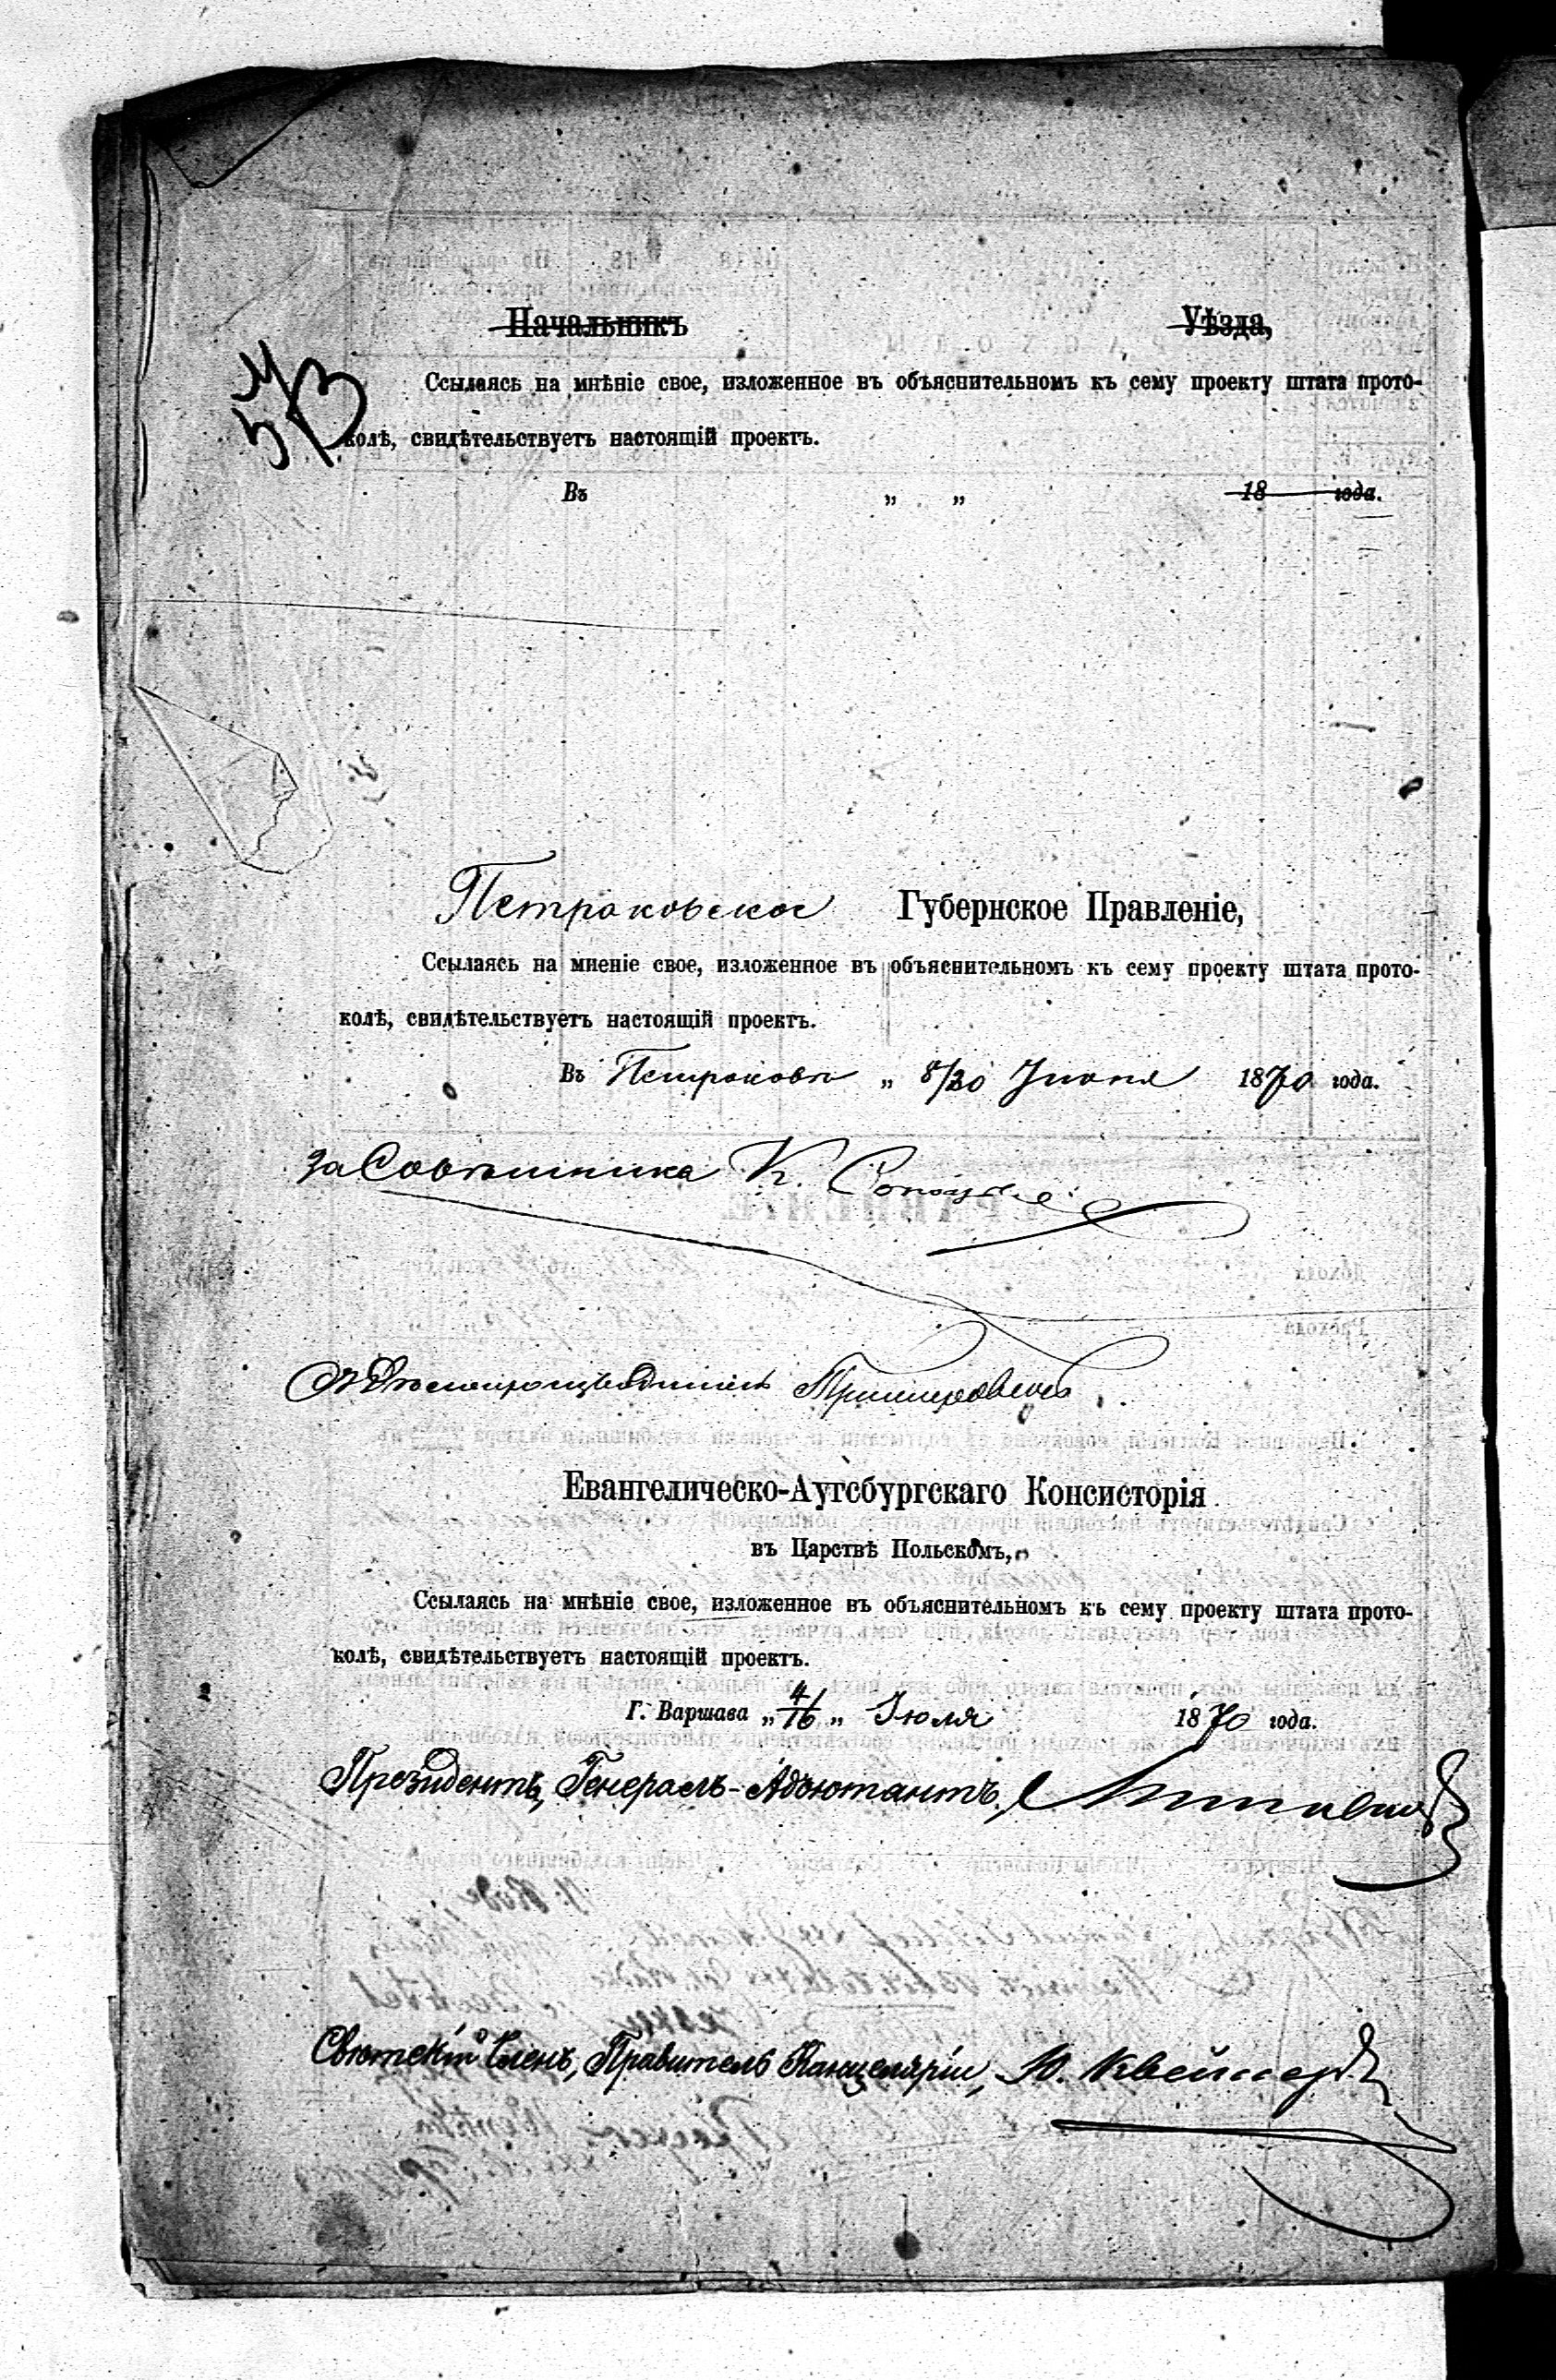 Начальникъ Уѣзда,
Ссылаясь на мнѣніе свое, изложенное въ объяснительномъ къ сему проекту штата прото-
колѣ, свидѣтельствуетъ настоящій проектъ.
Въ „ „ 18 года.
Петроковское Губернское Правленіе,
Ссылаясь на мненіе свое, изложенное въ объяснительномъ къ сему проекту штата прото-
колѣ, свидѣтельствуетъ настоящій проектъ.
Въ Петроковѣ „ 8/20 Іюня 1870 года.
За Совѣтника К.
Дѣлопроизводитель
Евангелическо-Аугсбургскаго Консисторія
въ Царствѣ Польскомъ,
Ссылаясь на мнѣніе свое, изложенное въ объяснительномъ къ сему проекту штата прото-
колѣ, свидѣтельствуетъ настоящій проектъ.
Г. Варшава „ 4/16 „ Іюля 1870 года.
Президентъ, Генералъ-Адъютантъ,
Свѣтскій Членъ, Правитель Канцеляріи, Ю.